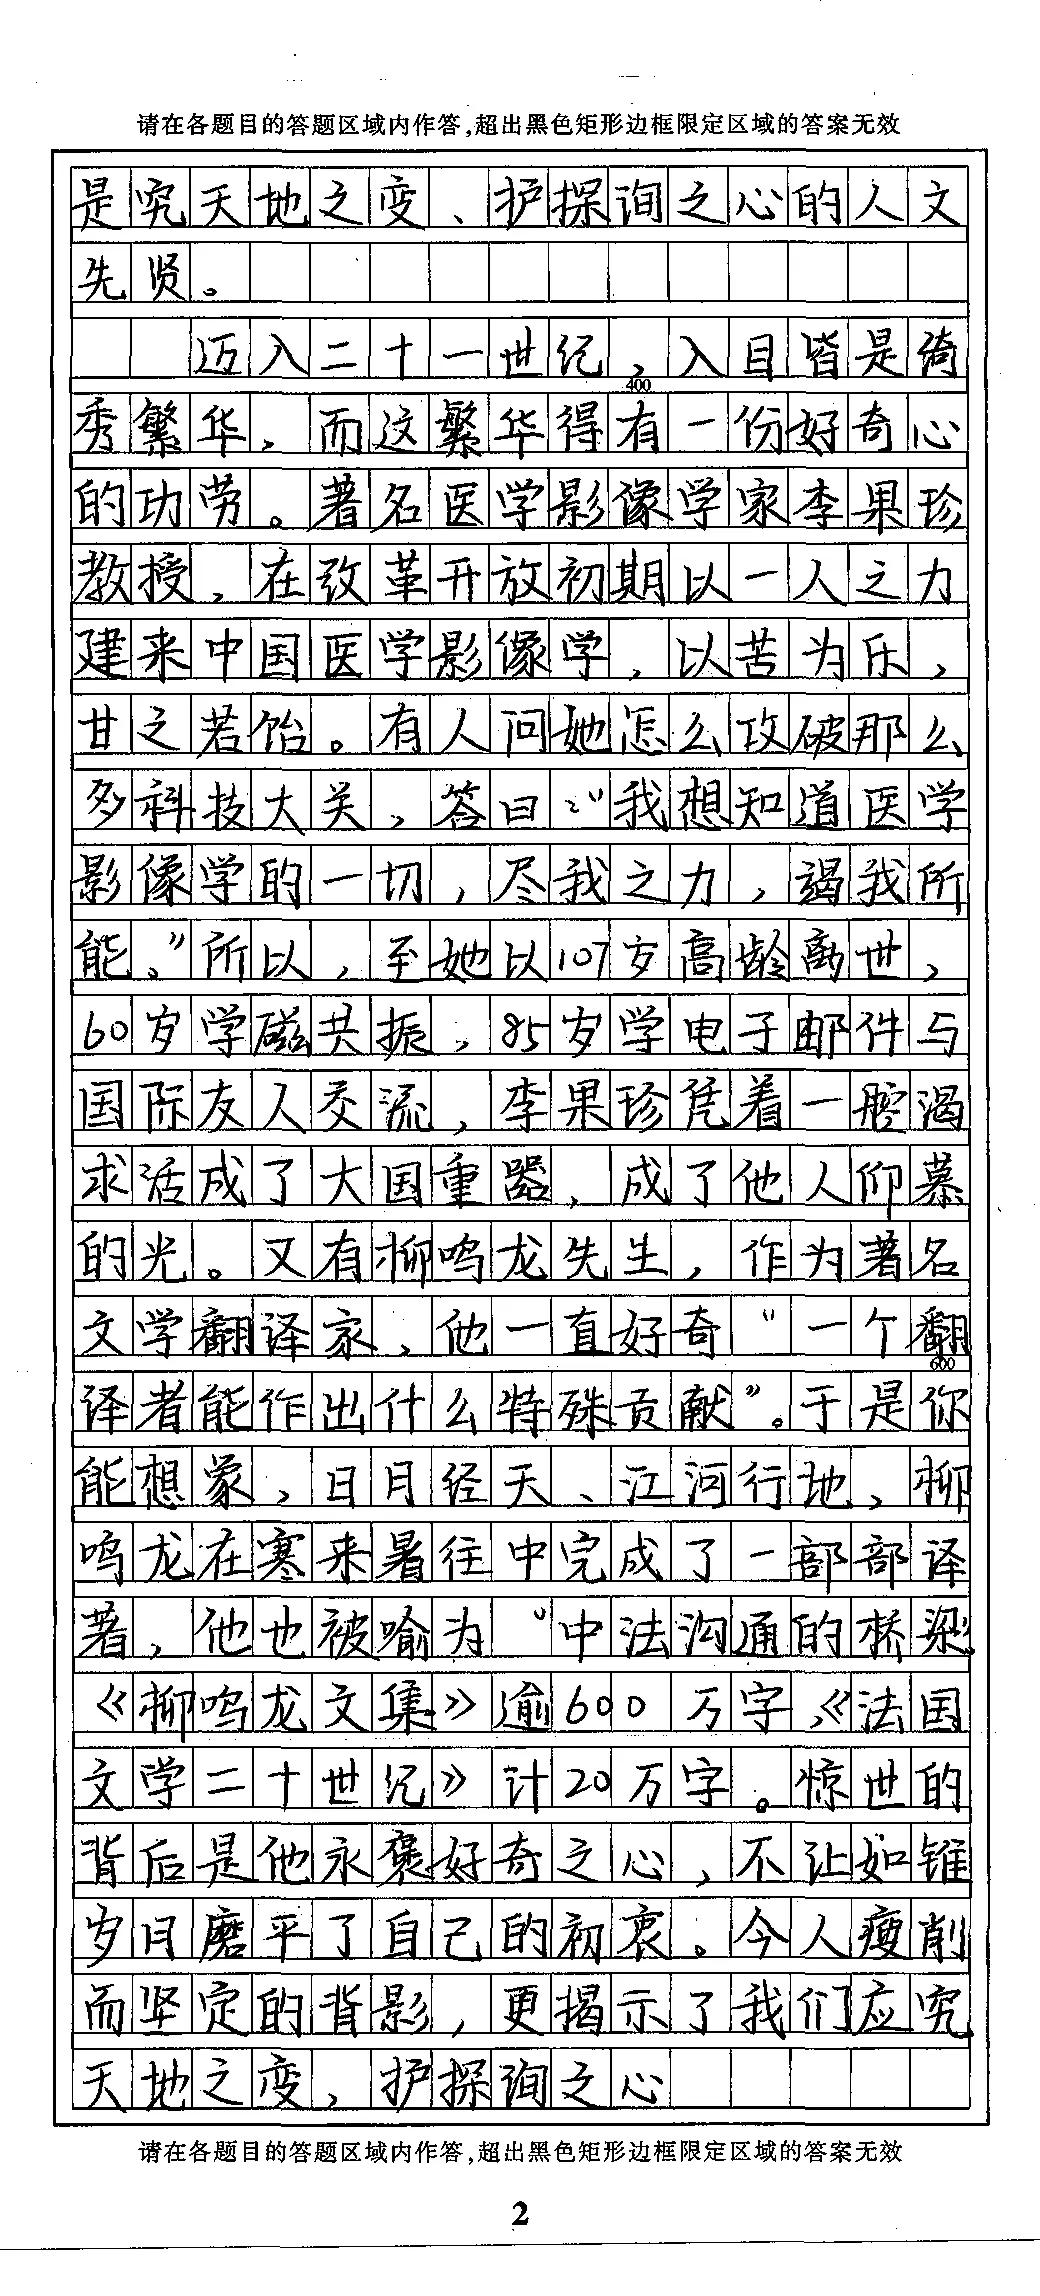 请在各题目的答题区域内作答,超出黑色矩形边框限定区域的答案无效
是究天地之变、护探询之心的人文
先贤。
迈入二十一世纪,入目皆是绮
400
秀繁华,而这繁华得有一份好奇心
的功劳。著名医学影像学家李果珍
教授,在改革开放初期以一人之力
建来中国医学影像学,以苦为乐,
甘之若饴。有人问她怎么攻破那么
多科技大关,答曰:“我想知道医学
影像学的一切,尽我之力,竭我所
能。”所以,至她以107岁高龄离世,
60岁学磁共振,85岁学电子邮件与
国际友人交流,李果珍凭着一腔渴
求活成了大国重器,成了他人仰慕
的光。又有柳鸣龙先生,作为著名
文学翻译家,他一直好奇“一个翻
600
译者能作出什么特殊贡献”。于是你
能想象,日月经天、江河行地,柳
鸣龙在寒来暑往中完成了一部部译
著,他也被喻为“中法沟通的桥梁”
《柳鸣龙文集》逾600万字,《法国
文学二十世纪》计20万字。惊世的
背后是他永褒好奇之心,不让如锥
岁月磨平了自己的初衷。今人瘦削
而坚定的背影,更揭示了我们应究
天地之变,护探询之心
请在各题目的答题区域内作答,超出黑色矩形边框限定区域的答案无效
2